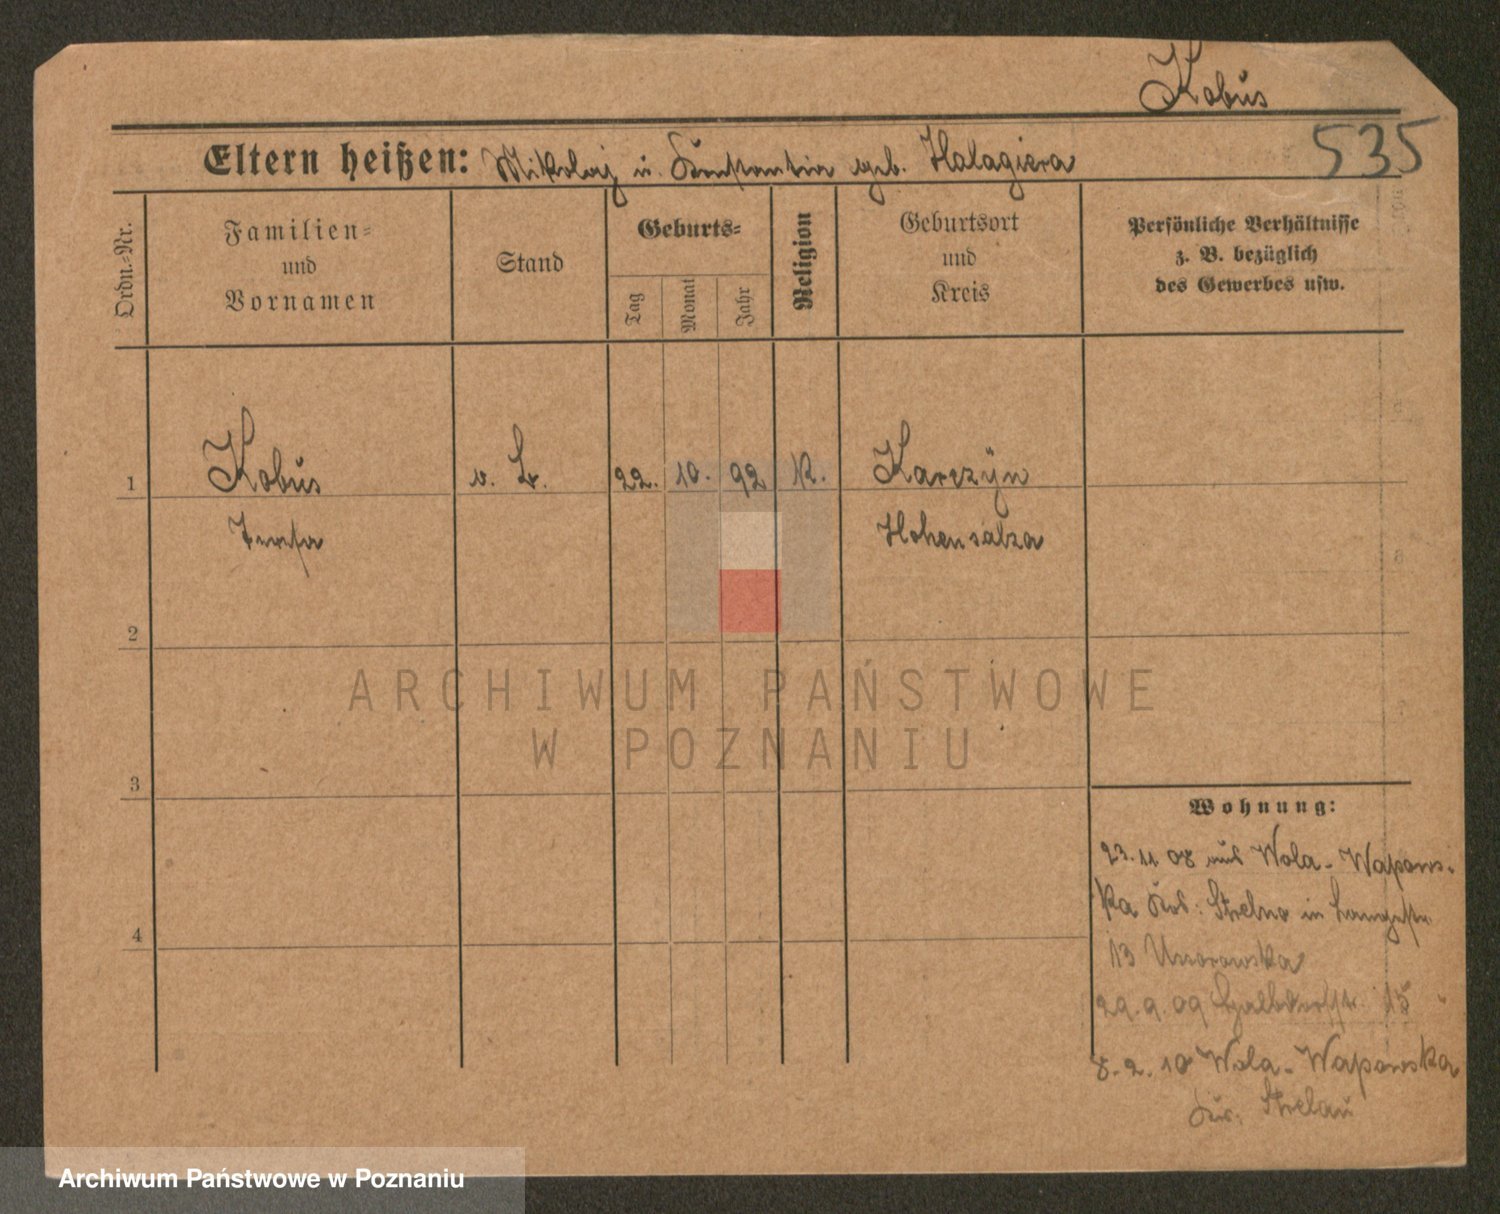 Kobus
535
Eltern heißen: Mikolaj u. Konstantia geb. Halagiera
Ordn.-Nr.
Familien-
und
Vornamen
Stand
Geburts-
Tag
Monat
Jahr
Religion
Geburtsort
und
Kreis
Persönliche Verhältnisse
z. B. bezüglich
des Gewerbes usw.
1
Kobus
22. 10. 92
K.
Karczyn
Teresa
Hohensalza
2
ARCHIWUM PAŃSTWOWE
W POZNANIU
3
Wohnung:
23.11.08 aus Wola-Wapows-
ka Strelno in Langestr.
4
13
29.9.09 15
8.2.10 Wola-Wapowska
Archiwum Państwowe w Poznaniu